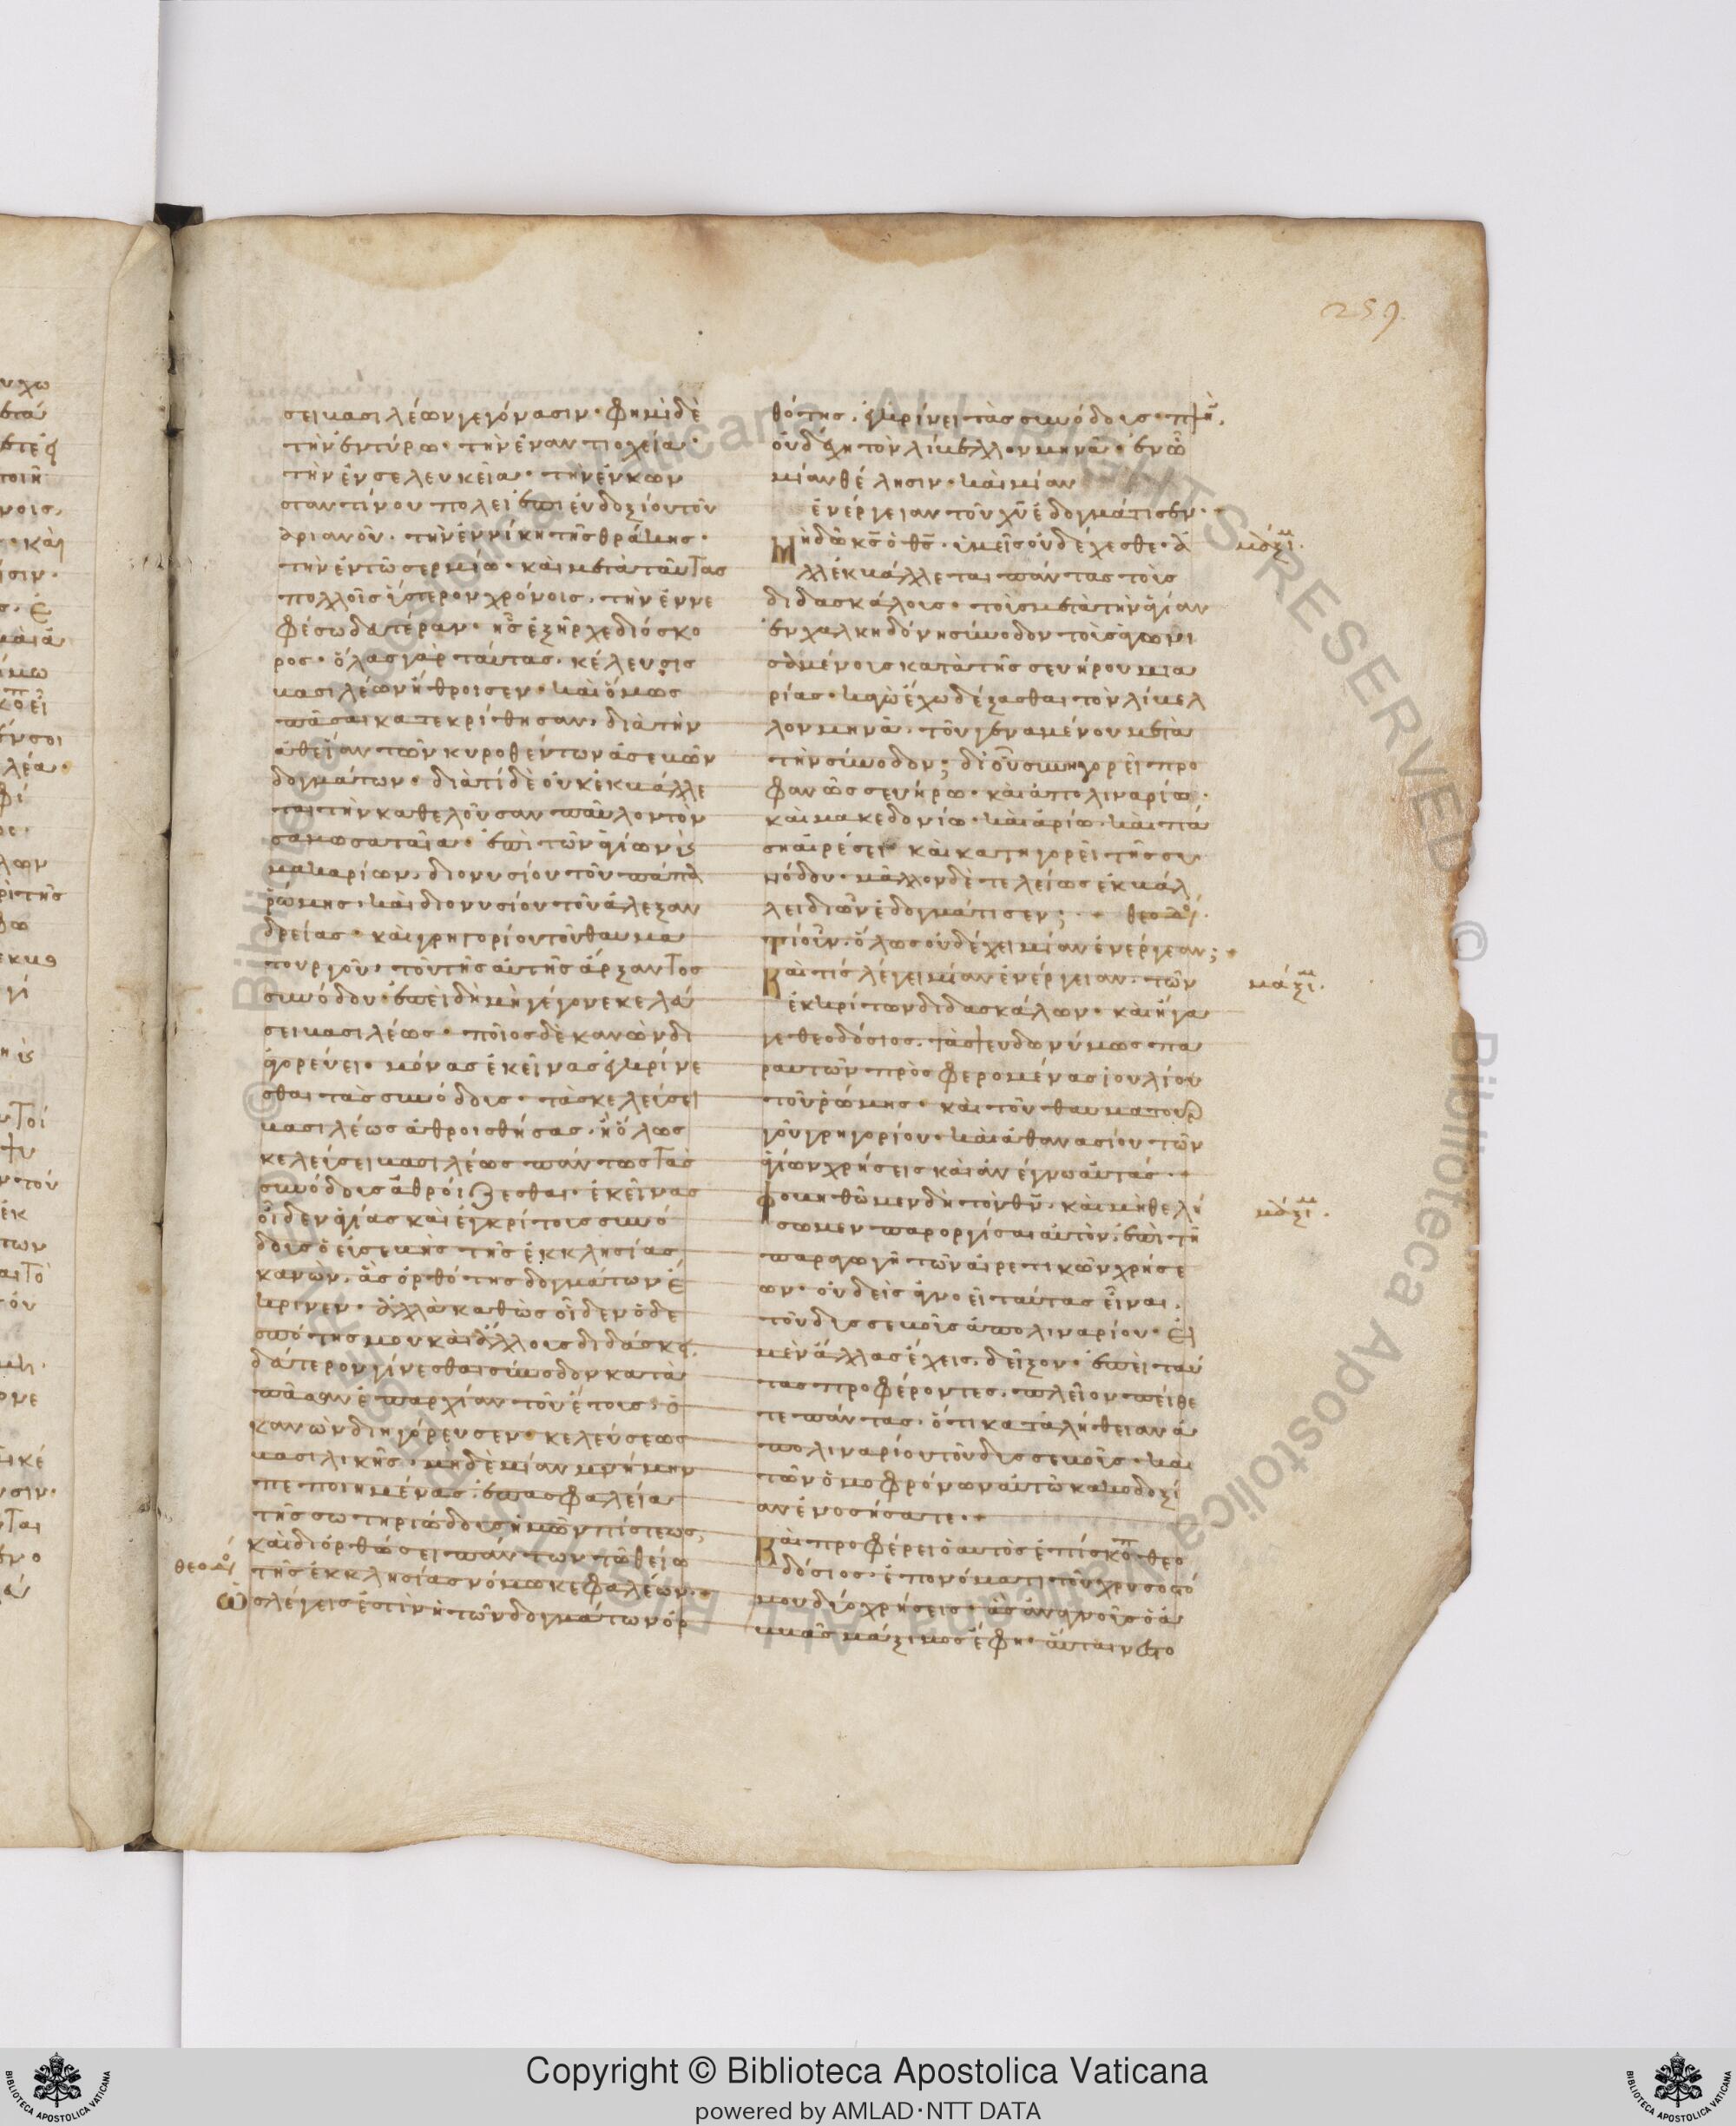 259.
σει βασιλέων γεγόνασιν· φημὶ δὲ
τὴν ἐν τύρω· τὴν ἐν αντιοχεία·
τὴν ἐν σελευκεία· τὴν ἐν κων
σταντίνου πολει ἐπι ἐυδοξίου τοῦ
ἀριανοῦ· τὴν ἐν νίκη τῆς θράκης·
τὴν ἐν τῶ σερμίω· καὶ μετὰ ταύτας
πολλοῖς ὕστερον χρόνοις, τὴν ἐν νε
φέσω δατέραν· ἧς ἐξῆρχε διόσκο
ρος· ὅλας γὰρ ταύτας, κέλευσις
βασιλέων ἤθροισεν· καὶ ὅμως
πᾶσαι κατεκρίθησαν, διὰ τὴν
ἀθεΐαν τῶν κυροθέντων ἀσεβῶν
δογμάτων· διατί δὲ οὐκ ἐκβάλλε
ται τὴν καθελοῦσαν παῦλον τὸν
σαμωσατέα· ἐπὶ τῶν ἁγίων κς
μακαρίων, διονυσίου τοῦ πάπα
ῥώμης, καὶ διονυσίου τοῦ ἀλεξαν
δρείας· καὶ γρηγορίου τοῦ θαυμα
τουργοῦ, τοῦ τῆς αὐτῆς ἄρξαντος
συνόδου· ἐπειδὴ μὴ γέγονε κελεύ
σει βασιλέως· ποῖος δὲ κανὼν δι
αγορεύει· μόνας ἐκεῖνας ἐγκρίνε
σθαι τὰς συνόδους· τὰς κελεύσει
βασιλέως ἀθροισθήσας· ἢ ὅλως
κελεύσει βασιλέως πάντως τὰς
συνόδους ἀθροίζεσθαι· ἐκεῖνας
οἶδεν ἁγίας καὶ ἐγκρίτους συνό
δους ὁ εὐσεβὴς τῆς ἐκκλησίας
κανὼν, ἃς ὀρθότης δογμάτων ἔ
κρινεν· ἀλλὰ καθὼς οἶδεν ὁ δε
σπότης μου καὶ ἄλλους διδάσκει,
δεύτερον γίνεσθαι σύνοδον κατὰ
πᾶσαν ἐπαρχίαν τοῦ ἔτους, ὁ
κανὼν διηγόρευσεν· κελεύσεως
βασιλικῆς, μηδὲ μίαν μνήμην
πεποιημένας, ἐπ ασφαλεία
τῆς σωτηριώδους ἡμῶν πίστεως,
καὶ διορθώσει πάντων τῶ θείω
τῆς ἐκκλησίας νόμω κεφαλέων·
ὡς λέγεις ἐστιν ἡ τῶν δογμάτων ὀρ
θεοδό
θότης, ἡ κρίνει τὰς συνόδους· πλὴν,
οὐ δέχη τὸν λίβελλον μηνᾶ· ἐν ὧ
μίαν θέλησιν· καὶ μίαν
ἐνέργειαν τοῦ χῦ ἐδογμάτισεν·
μὴ δῶ κς ὁ θς· ὑμεῖς οὐ δέχεσθε· ἀ
λλ ἐκβάλλεται πάντας τοὺς
διδασκάλους· τοὺς μετὰ τὴν ἁγίαν
ἐν χαλκηδόνη σύνοδον τοὺς ἀγωνι
σαμένους κατὰ τῆς σευήρου μια
ρίας· κἀγὼ ἔχω δέξασθαι τὸν λίβελ
λον μηνᾶ, τοῦ γεναμένου μετὰ
τὴν σύνοδον; δι οὗ συνηγορεῖ προ
φανῶς σευήρω· καὶ ἀπολιναρίω·
καὶ μακεδονίω· καὶ ἀρίω· καὶ πά
ση αἱρέσει· καὶ κατηγορεῖ τῆς συ
νόδου· μᾶλλον δὲ τελείως ἐκβάλ
λει δι ὧν ἐδογμάτισεν; θεοδό.
τί οὖν· ὅλως οὐ δέχει μίαν ἐνέργεαν;
καὶ τίς λέγει μίαν ἐνέργειαν· τῶν
ἐκκρίτων διδασκάλων· καὶ ἤγα
γε θεοδόσιος, τὰς ψευδωνύμως πα
ρ αυτῶν προσφερομένας ἰουλίου
τοῦ ῥώμης· καὶ τοῦ θαυματουρ
γοῦ γρηγορίου· καὶ ἀθανασίου τῶν
ἁγίων χρήσεις καὶ ἀνέγνω αὐτάς·
φοβηθῶμεν δὴ τὸν θν, καὶ μὴ θελή
σωμεν παροργίσαι αὐτὸν, ἐπὶ τῆ
παραγωγῆ τῶν αἱρετικῶν χρήσε
ων· οὐδεὶς ἀγνοεῖ ταύτας εἶναι,
τοῦ δυσσεβοῦς ἀπολιναρίου· εἰ
μὲν ἄλλας ἔχεις, δεῖξον· ἐπεὶ ταύ
τας προφέροντες, πλεῖον πείθε
τε πάντας, ὅτι κατ αλήθειαν ἀ
πολιναρίου τοῦ δυσσεβοῦς, καὶ
τῶν ὁμοφρόνων αὐτῶ κακοδοξί
αν ἐνοσήσατε·
καὶ προφέρει ὁ αυτὸς ἐπίσκοπ θεο
δόσιος· ἐπ ονόματι τοῦ χρυσοστό
μου δύο χρήσεις· ἃς ἀναγνοῦς ὁ ἀ
ββᾶς μάξιμος ἔφη· αὗται νεστο
μάξι.
μάξι.
μάξι.
Copyright © Biblioteca Apostolica Vaticana
powered by AMLAD·NTT DATA